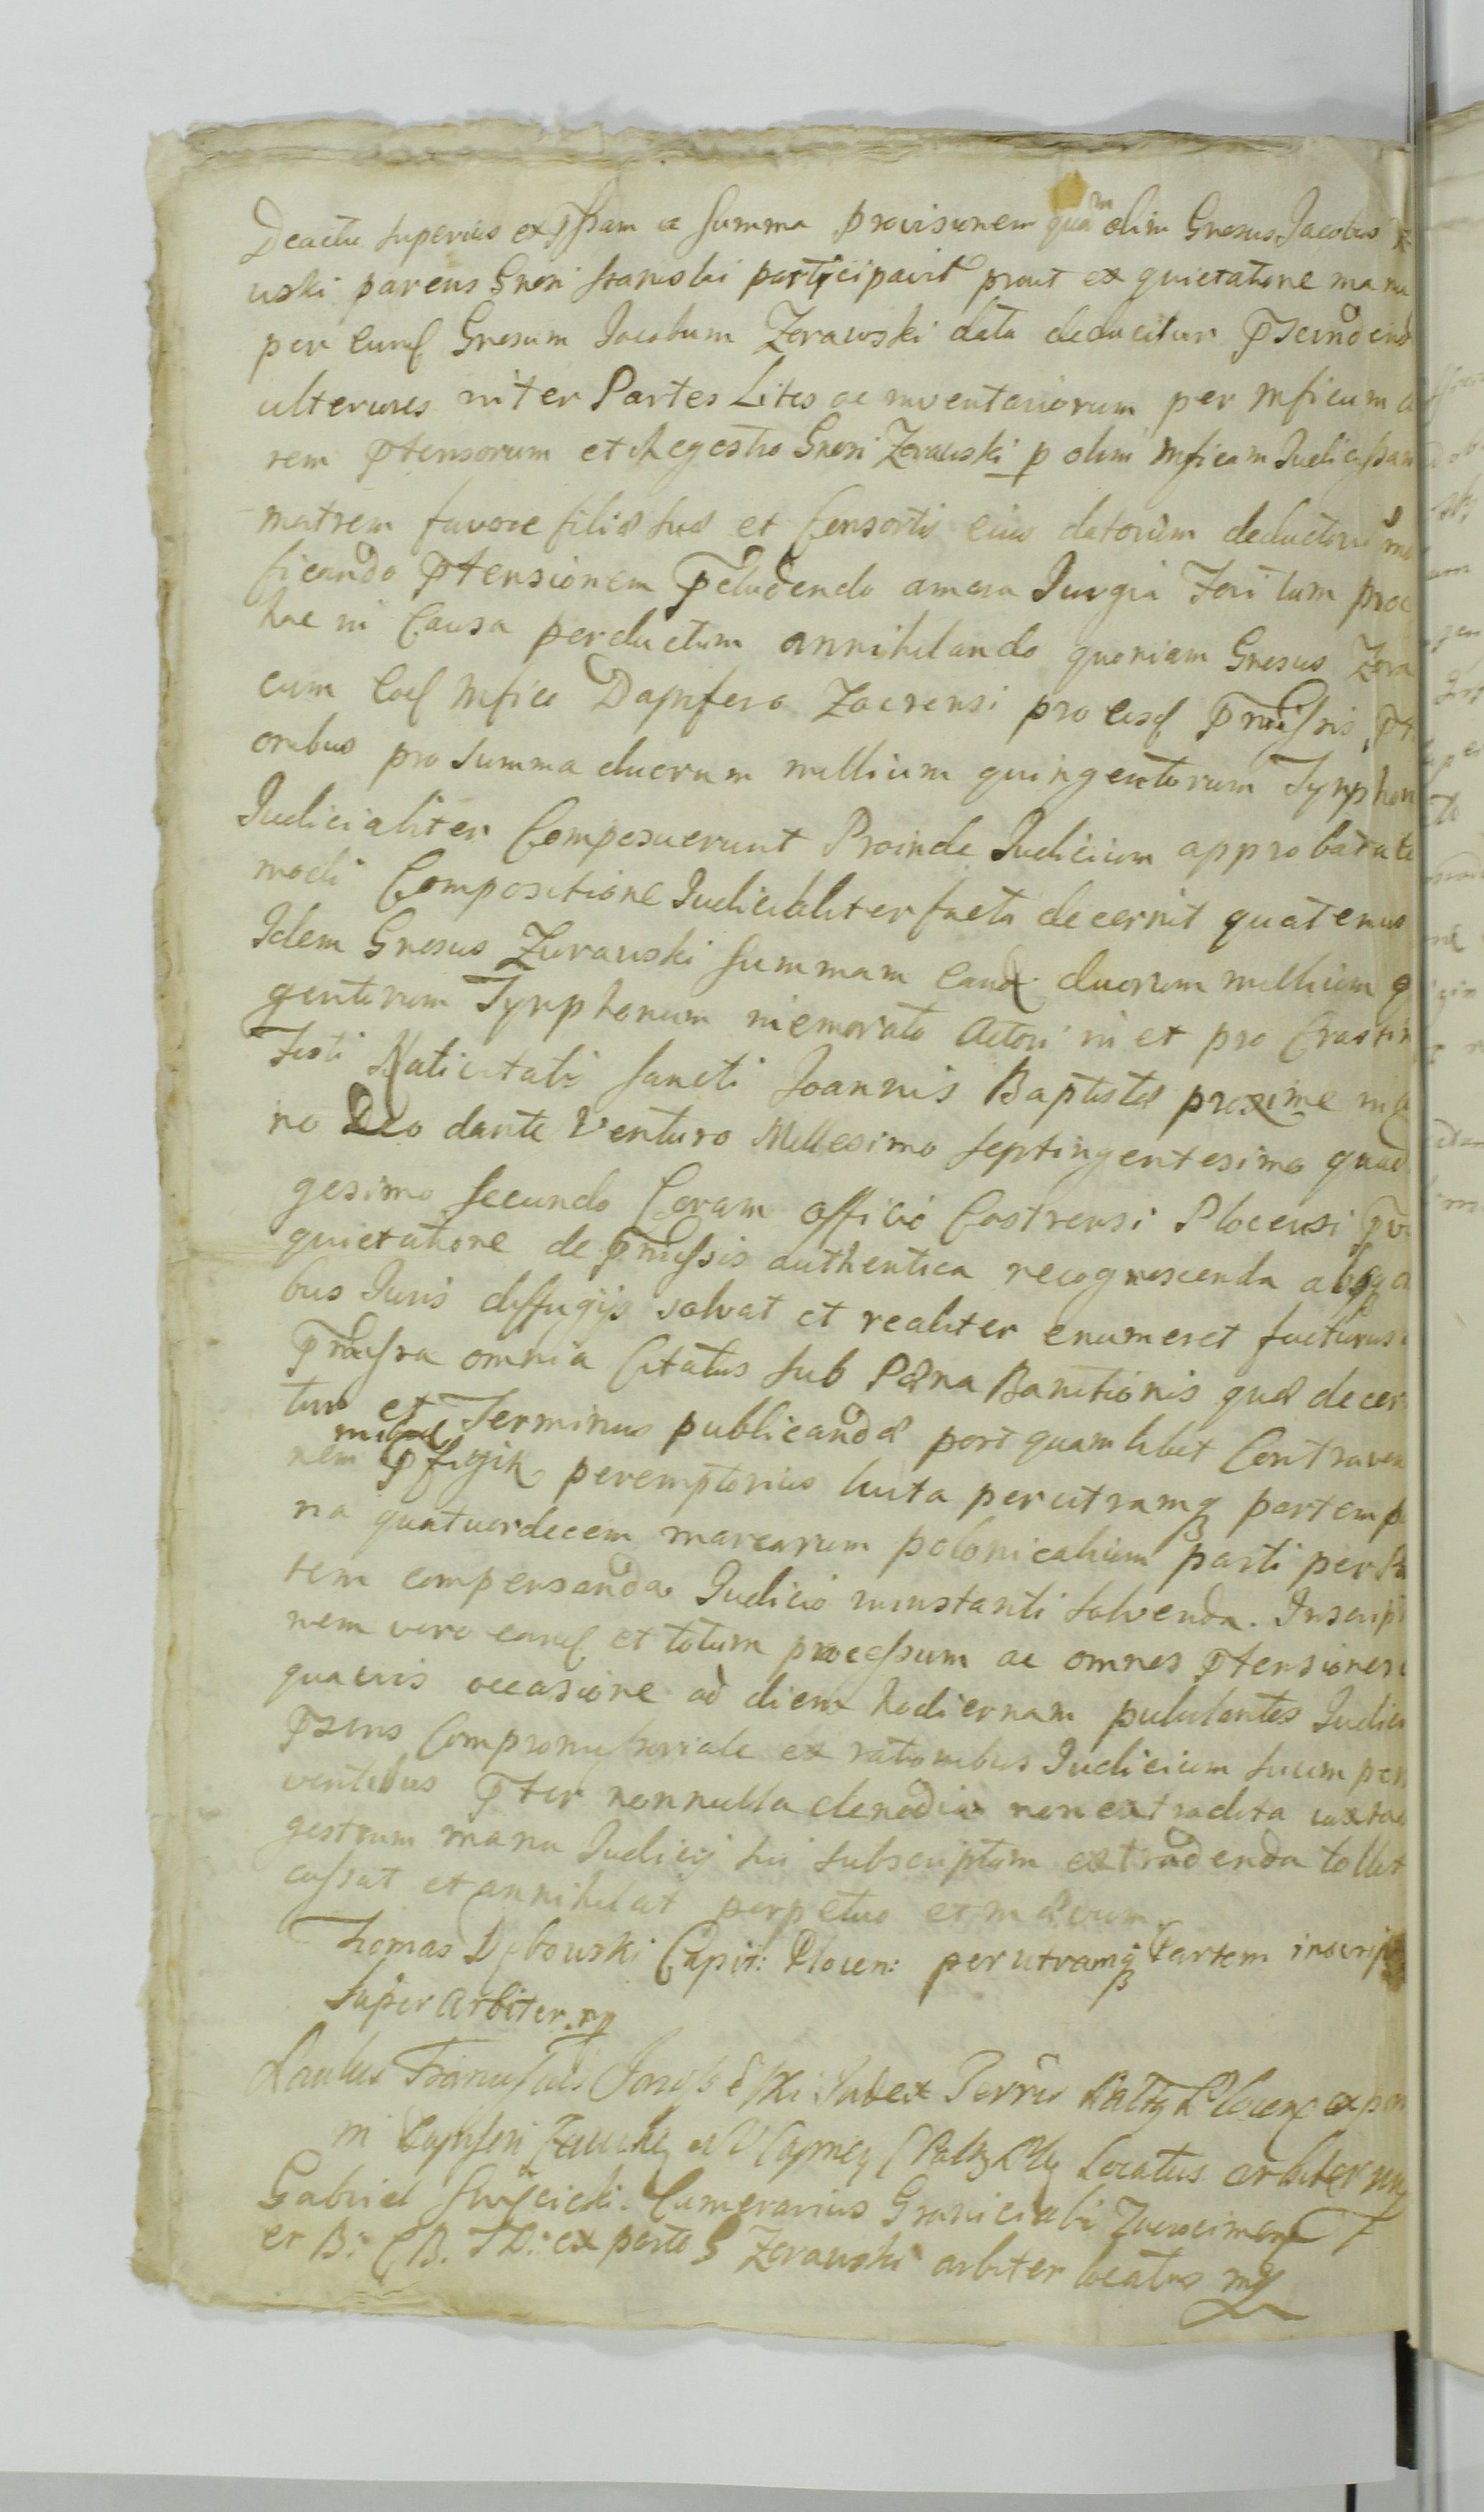 De actu superius expssam a Summa provisionem quam olim Gnosus Jacobus
uski parens Gnosi Stanislai participavit prout ex quietatione manu
per eund Gnosum Jacobum Zorawski data deducitur
ulteriores inter Partes Lites ac inventariorum per Mficum
rem ptensorum et Regestro Gnosi Zorauski p olim Mficam
matrem favore filiæ suæ et Consortis eius datorum
ficando ptensionem pcludendo amara Jurgia
hac in Causa perductum annihilando quoniam Gnosus Zora
cum eod Mfico Dapifero Zacrensi pro eisd pmissis
onibus pro Summa duorum millium quingentorum Tynphon
Judicialiter Composuerunt Proinde Judicium approbata
modi Compositione Judicialiter facta decernit quatenus
Idem Gnosus Zurauski Summam eand duorum millium q
gentorum Tynphonum memorato Actori in et pro Crastin
Festi Nativitatis Sancti Joannis Baptistæ proxime in
no Deo dante Venturo Millesimo Septingentesimo quad
gesimo Secundo Coram officio Castrensi Plocensi
quietatione de pmissis authentica recognoscenda absq
bus Juris diffugijs solvat et realiter enumeret facturus
pmissa omnia Citatus sub Pæna Banitionis quæ decer
tur et Terminus publicandæ post quamlibet Contraven
nem pfigit peremptorius luita per utramq partem
na quatuordecem marcarum polonicalium parti per
tem compensanda Judicio instanti solvenda. Inscripti
nem vero eand et totum processum ac omnes ptensiones
quavis occasione ad diem hodiernam pululantes Judici
psens Compromissoriale ex rationibus Judicium suum
ventibus pter nonnulla clenodia non extradita iuxta
gestrum manu Judicij sui subscriptum extradenda tollit
cassat et annihilat perpetuo et in ævum.
Thomas Dębowski Capit: Plocen: per utramq Partem
Super Arbiter. mp
Paulus Judex
Locatus arbiter mp
Gabriel Camerarius Granicialis
et B: CB. TD: ex parte G Zorauski arbiter locatus mp